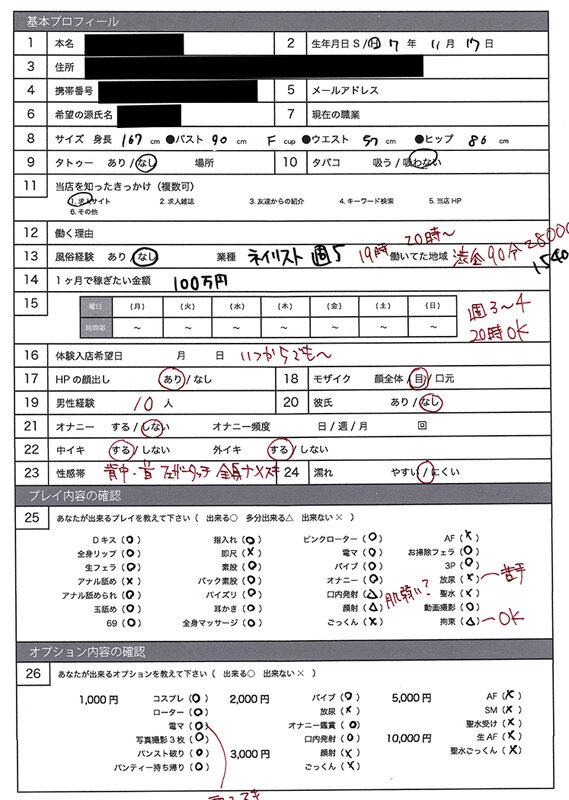 基本プロフィール
1 本名 2 生年月日 S / H 7 年 11 月 17 日
3 住所
4 携帯番号 5 メールアドレス
6 希望の源氏名 7 現在の職業
8 サイズ 身長 167 cm ●バスト 90 cm F cup ●ウエスト 57 cm ●ヒップ 86 cm
9 タトゥー あり / なし 場所 10 タバコ 吸う / 吸わない
11 当店を知ったきっかけ（複数可）
1. 求人サイト 2. 求人雑誌 3. 友達からの紹介 4. キーワード検索 5. 当店 HP
6. その他
12 働く理由 20時〜
13 風俗経験 あり / なし 業種 ネイリスト 週5 19時 働いてた地域 90分
14 1ヶ月で稼ぎたい金額 100万円
15 曜日 (月) (火) (水) (木) (金) (土) (日) 週3〜4
時間帯 ～ ～ ～ ～ ～ ～ ～ 20時OK
16 体験入店希望日 月 日 いつからでも〜
17 HPの顔出し あり / なし 18 モザイク 顔全体 / 目 / 口元
19 男性経験 10 人 20 彼氏 あり / なし
21 オナニー する / しない オナニー頻度 日 / 週 / 月 回
22 中イキ する / しない 外イキ する / しない
23 性感帯 背中・首 フェザータッチ 24 濡れ やすい / にくい
プレイ内容の確認
25 あなたが出来るプレイを教えて下さい（ 出来る○ 多分出来る△ 出来ない× ）
Dキス（○） 指入れ（○） ピンクローター（○） AF（×）
全身リップ（○） 即尺（×） 電マ（○） お掃除フェラ（○）
生フェラ（○） 素股（○） バイブ（○） 3P（○）
アナル舐め（×） バック素股（○） オナニー（○） 放尿（×） 〜苦手
アナル舐められ（○） パイズリ（○） 口内発射（△） 肌弱い? 聖水（×）
玉舐め（○） 耳かき（○） 顔射（△） 動画撮影（○）
69（○） 全身マッサージ（○） ごっくん（×） 拘束（△） 〜OK
オプション内容の確認
26 あなたが出来るオプションを教えて下さい（ 出来る○ 出来ない× ）
1,000円 コスプレ（○） 2,000円 バイブ（○） 5,000円 AF（×）
ローター（○） 放尿（×） SM（×）
電マ（○） オナニー鑑賞（○） 聖水受け（×）
写真撮影3枚（○） 口内発射（○） 10,000円 生AF（×）
パンスト破り（○） 3,000円 顔射（×） 聖水ごっくん（×）
パンティー持ち帰り（○） ごっくん（×）